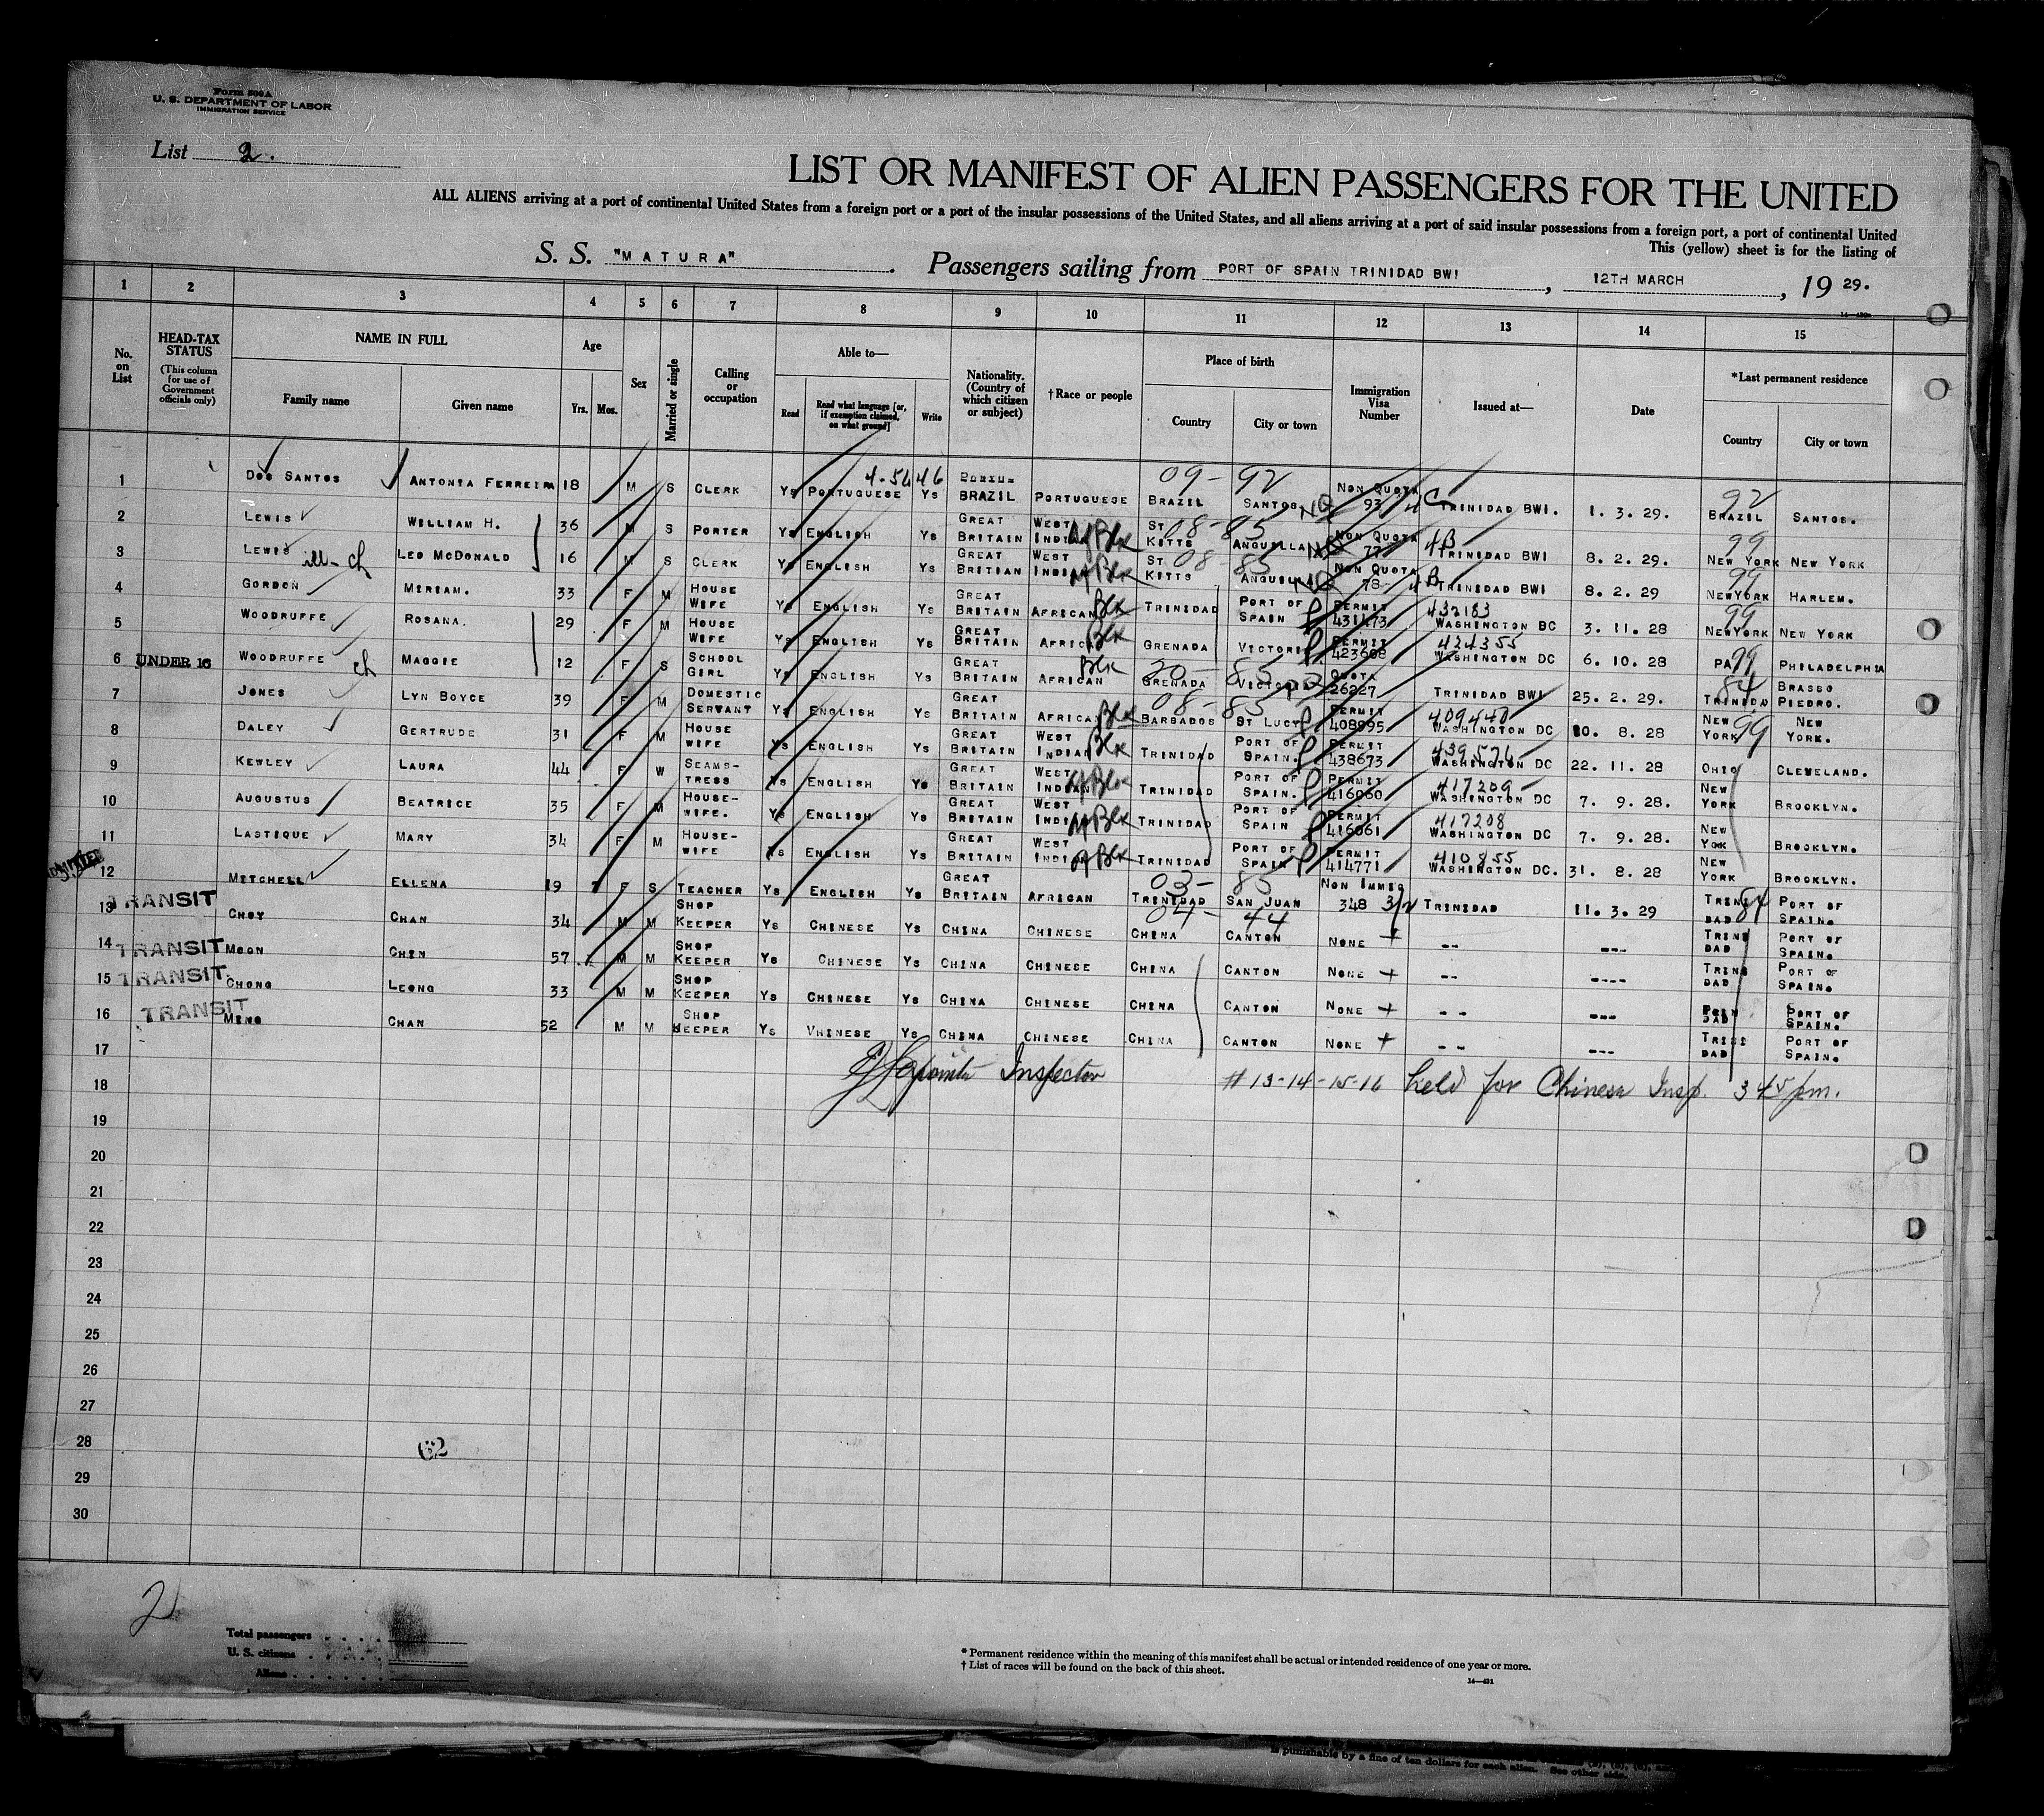 Form 500A
U. S. DEPARTMENT OF LABOR
IMMIGRATION SERVICE
List 2.
LIST OR MANIFEST OF ALIEN PASSENGERS FOR THE UNITED
ALL ALIENS arriving at a port of continental United States from a foreign port or a port of the insular possessions of the United States, and all aliens arriving at a port of said insular possessions from a foreign port, a port of continental United
This (yellow) sheet is for the listing of
S. S. "MATURA" Passengers sailing from PORT OF SPAIN TRINIDAD BWI, 12TH MARCH, 19 29.
1 2 3 4 5 6 7 8 9 10 11 12 13 14 15
No. on List
HEAD-TAX STATUS (This column for use of Government officials only)
NAME IN FULL Family name Given name
Age Yrs. Mos.
Sex
Married or single
Calling or occupation
Able to— Read Read what language [or, if exemption claimed, on what ground] Write
Nationality. (Country of which citizen or subject)
†Race or people
Place of birth Country City or town
Immigration Visa Number
Issued at—
Date
*Last permanent residence Country City or town
1 DOS SANTOS ANTONIA FERREIRA 18 M S CLERK YS PORTUGUESE 4-5446 YS BRAZIL PORTUGUESE BRAZIL SANTOS 09-92 NQ NON QUOTA 93 4C TRINIDAD BWI. 1. 3. 29. BRAZIL 92 SANTOS.
2 LEWIS WILLIAM H. 36 M S PORTER YS ENGLISH YS GREAT BRITAIN WEST INDIAN Af Blk ST KITTS ANGUILLA 08-85 NQ NON QUOTA 77 4B TRINIDAD BWI 8. 2. 29. NEW YORK 99 NEW YORK
3 LEWIS ill-ch LEO MCDONALD 16 M S CLERK YS ENGLISH YS GREAT BRITIAN WEST INDIAN Af Blk ST KITTS ANGUILLA 08-85 NQ NON QUOTA 78 4B TRINIDAD BWI 8. 2. 29 NEWYORK 99 HARLEM.
4 GORDON MIRIAM. 33 F M HOUSE WIFE YS ENGLISH YS GREAT BRITAIN AFRICAN Blk TRINIDAD PORT OF SPAIN P PERMIT 431173 432183 WASHINGTON BC 3. 11. 28 NEWYORK 99 NEW YORK
5 WOODRUFFE ROSANA. 29 F M HOUSE WIFE YS ENGLISH YS GREAT BRITAIN AFRICAN Blk GRENADA VICTORIA P PERMIT 423608 424355 WASHINGTON DC 6. 10. 28 PA 99 PHILADELPHIA
6 UNDER 16 WOODRUFFE ch MAGGIE 12 F S SCHOOL GIRL YS ENGLISH YS GREAT BRITAIN AFRICAN Blk GRENADA VICTORIA QUOTA 26227 TRINIDAD BWI 25. 2. 29. TRINIDAD 84 BRASSO PIEDRO.
7 JONES LYN BOYCE 39 F M DOMESTIC SERVANT YS ENGLISH YS GREAT BRITAIN AFRICAN Blk BARBADOS ST LUCY 08-85 P PERMIT 408995 409440 WASHINGTON DC 10. 8. 28 NEW YORK 99 NEW YORK.
8 DALEY GERTRUDE 31 F M HOUSE WIFE YS ENGLISH YS GREAT BRITAIN WEST INDIAN Blk TRINIDAD PORT OF SPAIN. P PERMIT 438673 439576 WASHINGTON DC 22. 11. 28 OHIO CLEVELAND.
9 KEWLEY LAURA 44 F W SEAMS-TRESS YS ENGLISH YS GREAT BRITAIN WEST INDIAN Af Blk TRINIDAD PORT OF SPAIN. P PERMIT 416060 417209 WASHINGTON DC 7. 9. 28. NEW YORK BROOKLYN.
10 AUGUSTUS BEATRICE 35 F M HOUSE-WIFE. YS ENGLISH YS GREAT BRITAIN WEST INDIAN Af Blk TRINIDAD PORT OF SPAIN P PERMIT 416061 417208 WASHINGTON DC 7. 9. 28. NEW YOK BROOKLYN.
11 LASTIQUE MARY 34 F M HOUSE-WIFE YS ENGLISH YS GREAT BRITAIN WEST INDIAN Af Blk TRINIDAD PORT OF SPAIN P PERMIT 414771 410855 WASHINGTON DC. 31. 8. 28 NEW YORK BROOKLYN.
12 ADMITTED MITCHELL ELLENA 19 F S TEACHER YS ENGLISH YS GREAT BRITAIN AFRICAN TRINIDAD SAN JUAN 03-85 NON IMMIG 348 3/2 TRINIDAD 11. 3. 29 TRINIDAD 84 PORT OF SPAIN.
13 TRANSIT CHOY CHAN 34 M M SHOP KEEPER YS CHINESE YS CHINA CHINESE CHINA CANTON 04-44 NONE + -- --- TRINIDAD PORT OF SPAIN.
14 TRANSIT MOON CHIN 57 M M SHOP KEEPER YS CHINESE YS CHINA CHINESE CHINA CANTON NONE + -- ---- TRINIDAD PORT OF SPAIN.
15 TRANSIT CHONG LEONG 33 M M SHOP KEEPER YS CHINESE YS CHINA CHINESE CHINA CANTON NONE + -- --- DAD PORT OF SPAIN.
16 TRANSIT MING CHAN 52 M M SHOP KEEPER YS VHINESE YS CHINA CHINESE CHINA CANTON NONE + -- --- TRINIDAD PORT OF SPAIN.
17
18 Inspector #13-14-15-16 held for Chinese Insp. 345 pm.
19
20
21
22
23
24
25
26
27
28 62
29
30
2
Total passengers
U. S. citizens
Aliens
* Permanent residence within the meaning of this manifest shall be actual or intended residence of one year or more.
† List of races will be found on the back of this sheet.
14—431
is punishable by a fine of ten dollars for each alien. See other side.